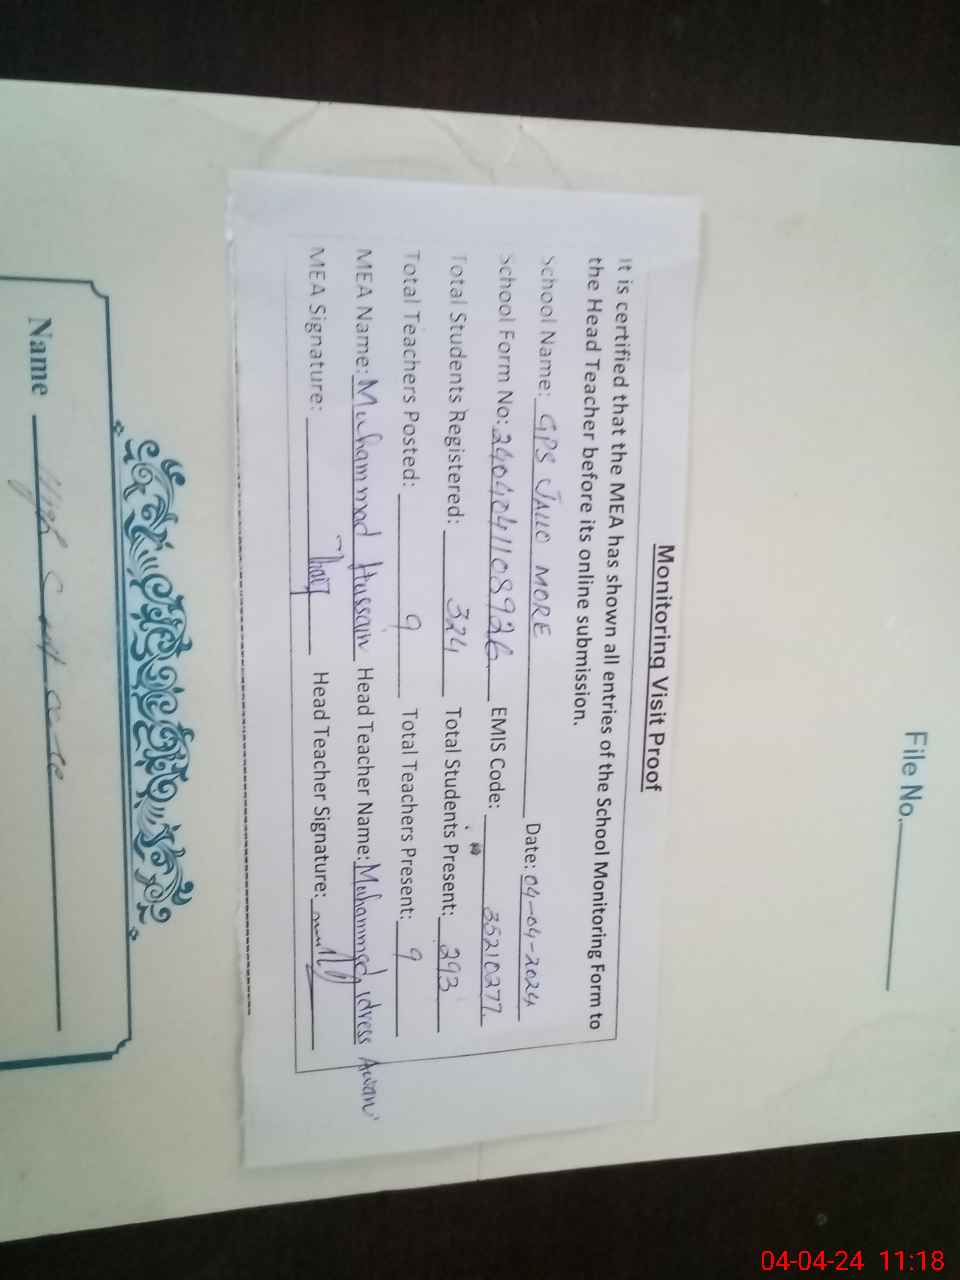 File No.
Monitoring Visit Proof
It is certified that the MEA has shown all entries of the School Monitoring Form to
the Head Teacher before its online submission.
School Name: GPS JALLO MORE Date: 04-04-2024
School Form No: 2404041108926 EMIS Code: 35210277
Total Students Registered: 324 Total Students Present: 293
Total Teachers Posted: 9 Total Teachers Present: 9
MEA Name: Muhammad Hussain Head Teacher Name: Muhammad idress Awan
MEA Signature: Head Teacher Signature:
Name
04-04-24 11:18